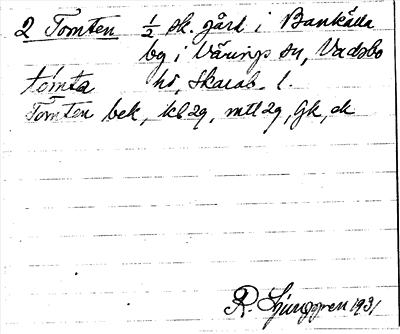 2 Tomten ½ sk. gård i Bankälla
by i Väring sn, Vadsbo
tómta hd, Skarab. l.
Tomten bek, kb 29, mtl 29, Gk, dk
R. Ljunggren 1931